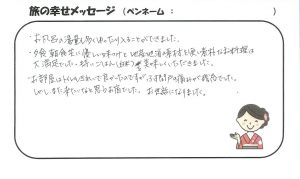 旅の幸せメッセージ（ペンネーム：　　　　）
・お風呂は湯量も多くゆったり入ることができました。
・夕食、朝食共に優しい味つけと地産地消の素材を使い素朴なお料理は
大満足でした。特にごはん(白米)美味しくいただきました。
・お部屋はトイレもきれいで良かったのですが、ふすま間戸の傷みが残念でした。
しかしまた来たいなと思うお宿でした。お世話になりました。